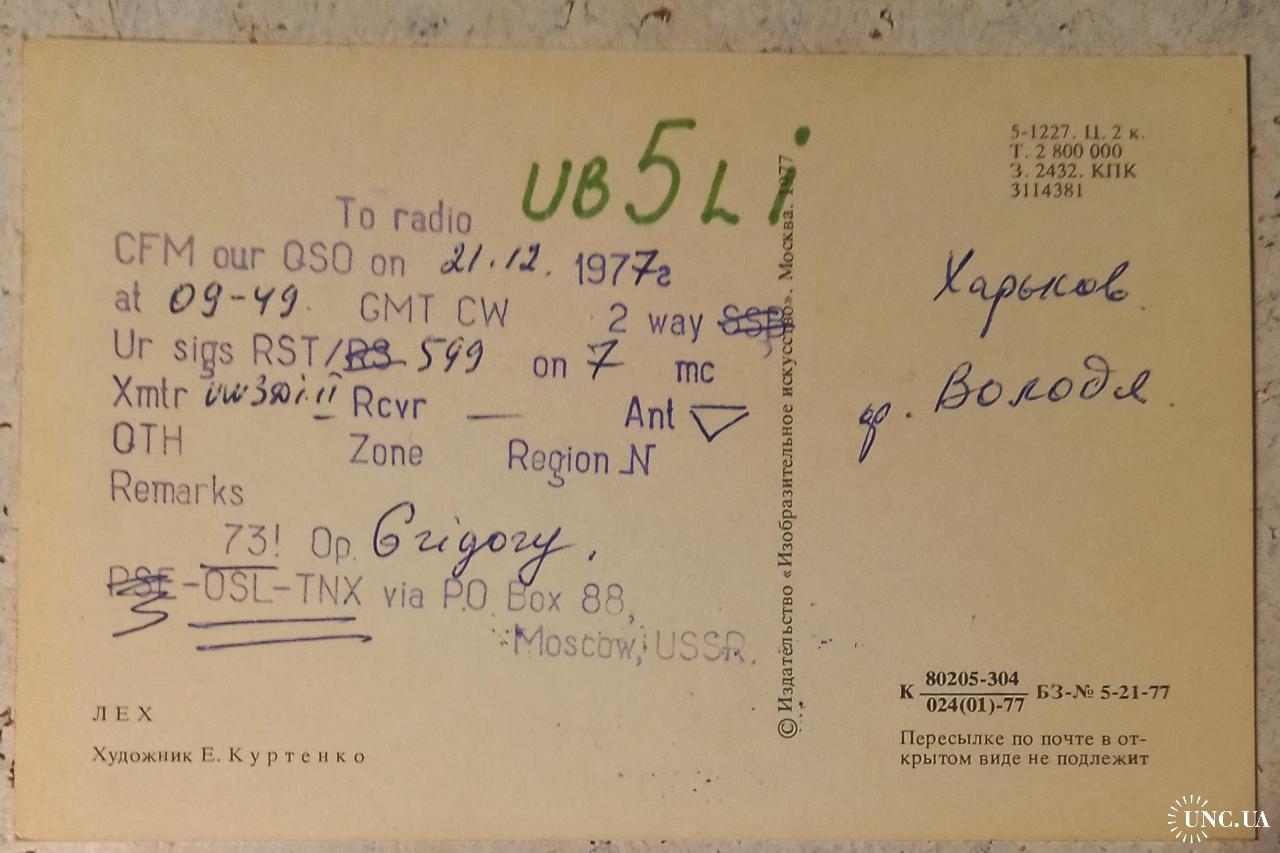 UB5Li
To radio
CFM our QSO on 21.12. 1977г
at 09-49. GMT CW 2 way SSB
Ur sigs RST/RS 599 on 7 mc
Xmtr Rcvr — Ant ▽
QTH Zone Region N
Remarks
73! Op. Grigory.
PSE-QSL-TNX via P.O. Box 88,
Moscow, USSR.
ЛЕХ
Художник Е. Куртенко
© Издательство «Изобразительное искусство». Москва. 1977
5-1227. Ц. 2 к.
Т. 2 800 000
З. 2432. КПК
3114381
Харьков
Володя
К 80205-304 / 024(01)-77 БЗ-№ 5-21-77
Пересылке по почте в от-
крытом виде не подлежит
UNC.UA